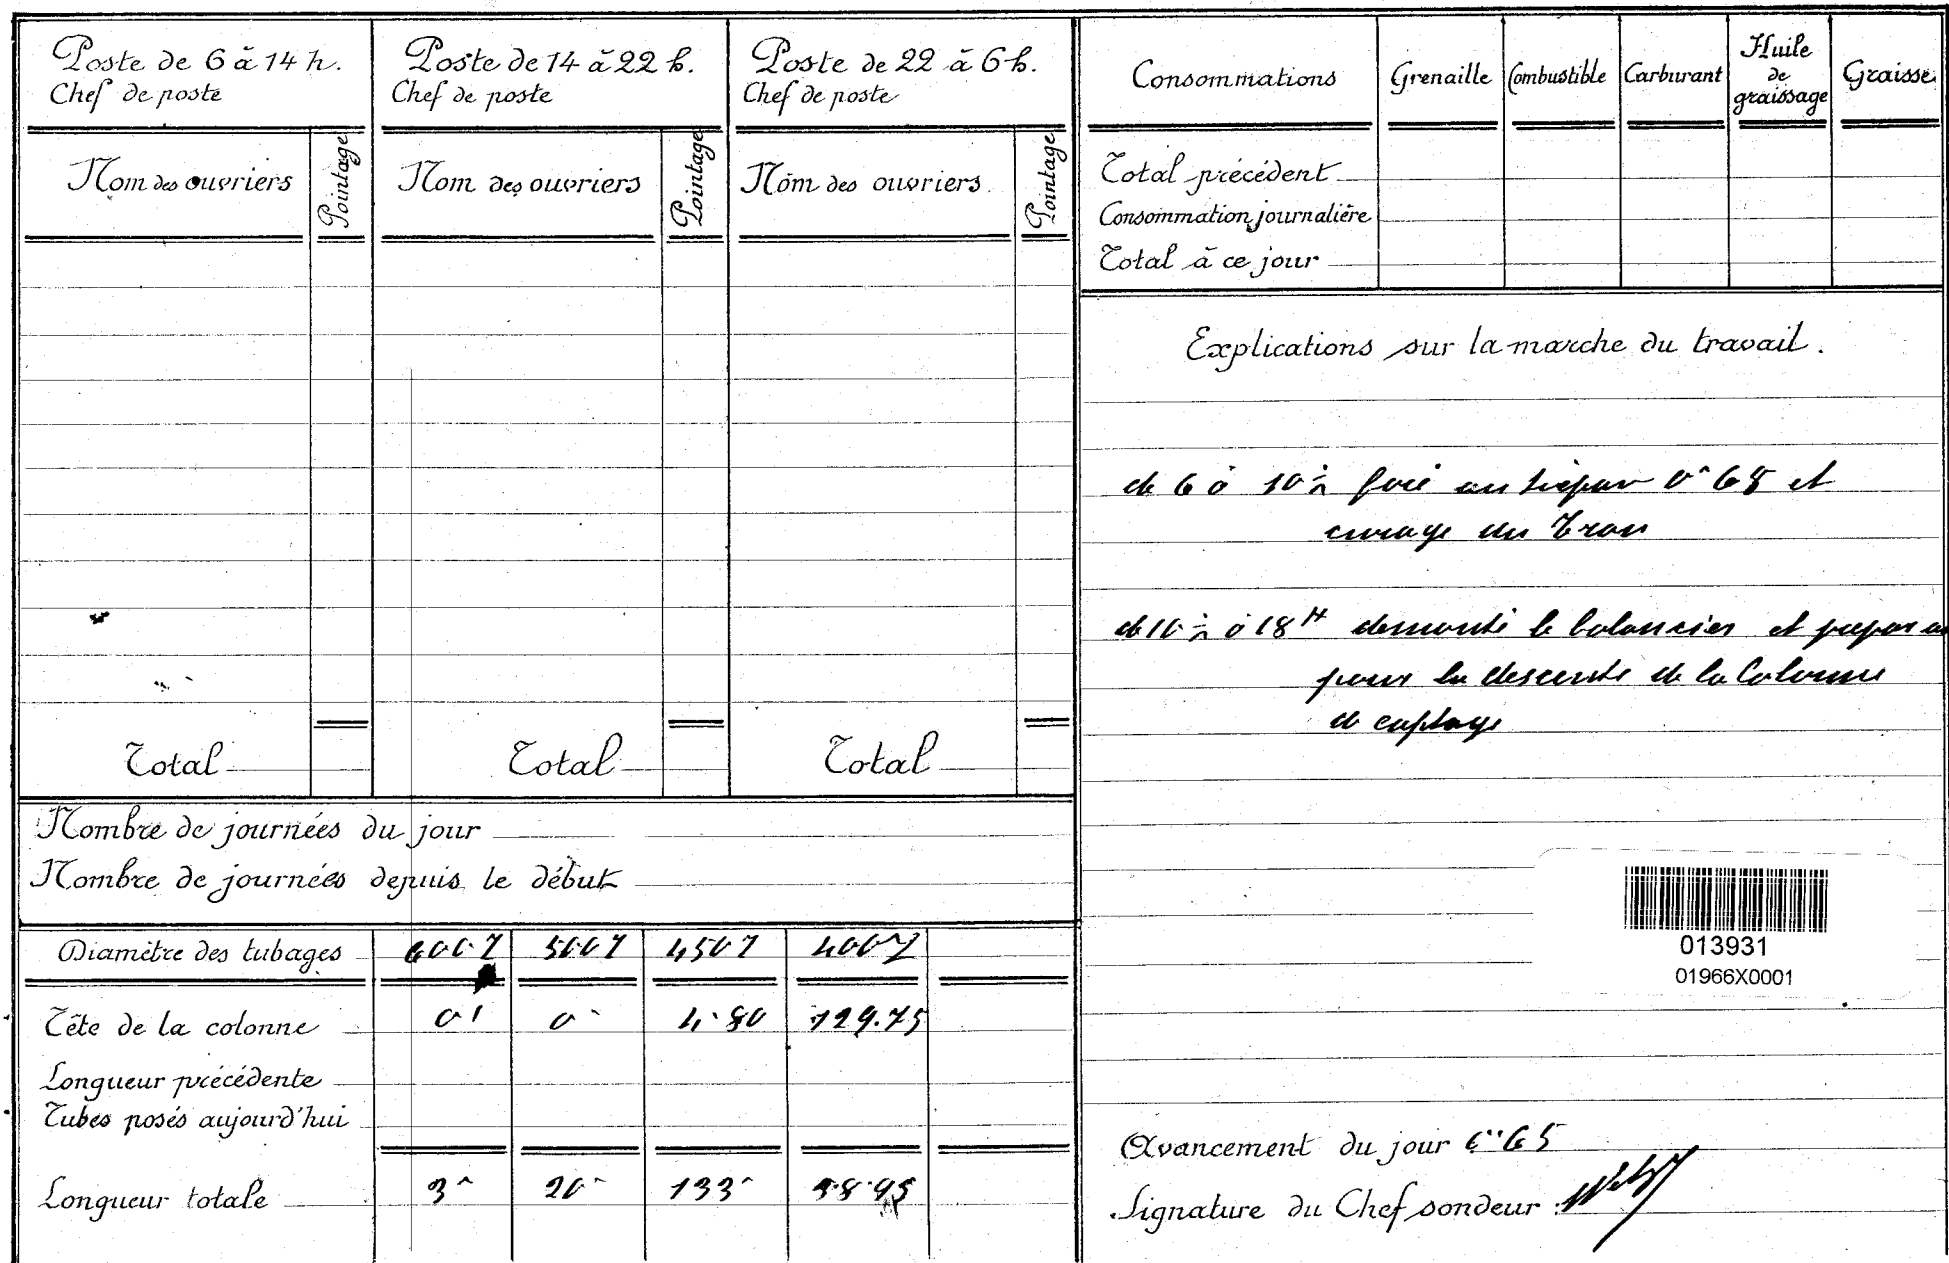 Poste de 6 à 14 h.
Chef de poste
Nom des ouvriers
Pointage
Total
Poste de 14 à 22 h.
Chef de poste
Nom des ouvriers
Pointage
Total
Poste de 22 à 6 h.
Chef de poste
Nom des ouvriers
Pointage
Total
Nombre de journées du jour
Nombre de journées depuis le début
Diamètre des tubages
Tête de la colonne 4.80 129.75
Longueur précédente
Tubes posés aujourd'hui
Longueur totale 3m 20m 133m
Consommations Grenaille Combustible Carburant Huile de graissage Graisse
Total précédent
Consommation journalière
Total à ce jour
Explications sur la marche du travail.
de 6 à 10 h foré au trépan et
curage du Trou
de 10 h à 18 H demonté le balancier et
pour la descente de la Colonne
de captage
013931
01966X0001
Avancement du jour
Signature du Chef sondeur :